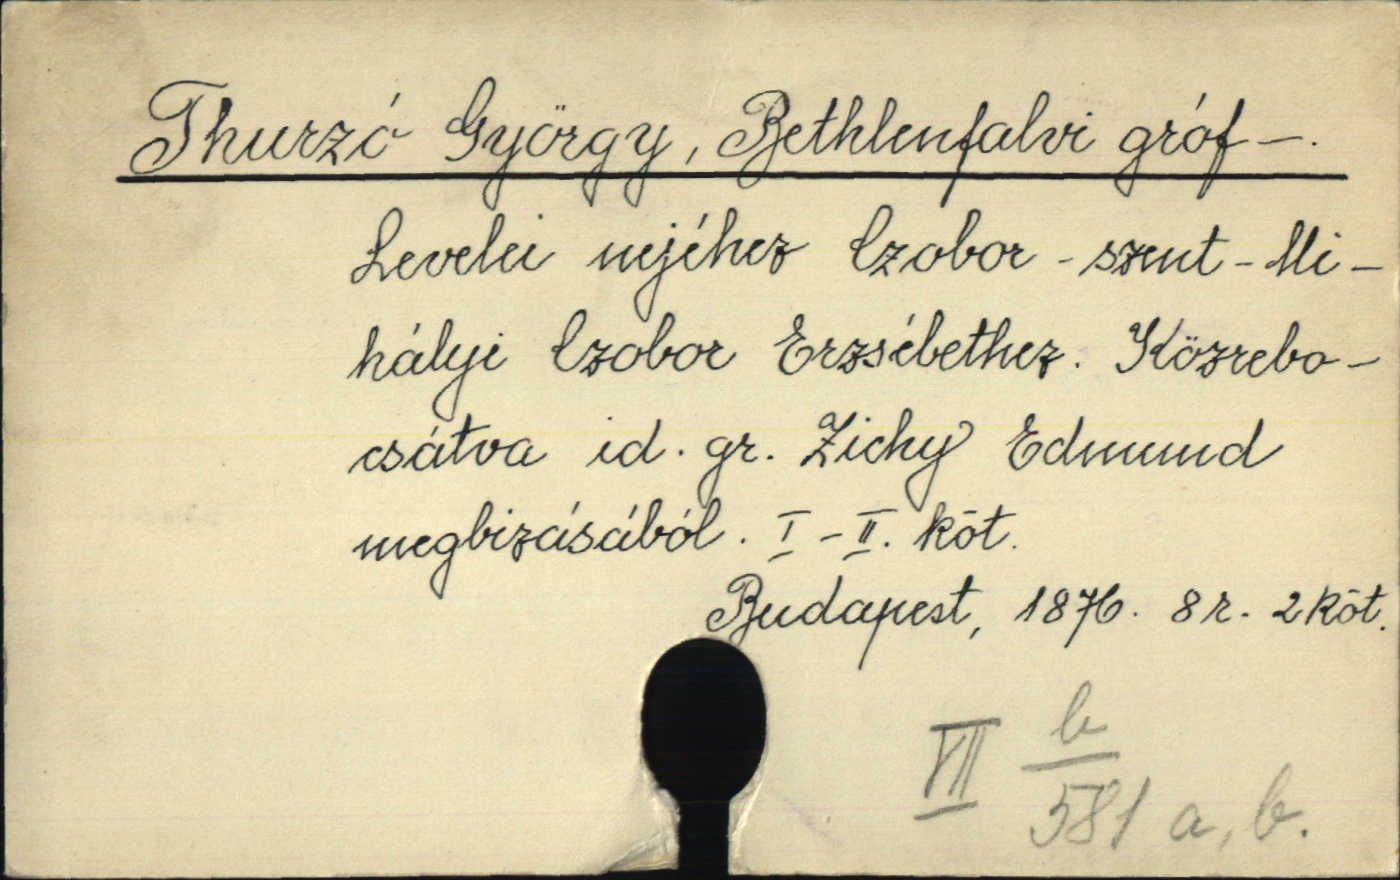 Thurzó György, Bethlenfalvi gróf –.
Levelei nejéhez Czobor - szent - Mi -
hályi Czobor Erzsébethez. Közrebo -
csátva id. gr. Zichy Edmund
megbizásából. I - II. köt.
Budapest, 1876. 8 r. 2 köt.
VII b
581 a, b.